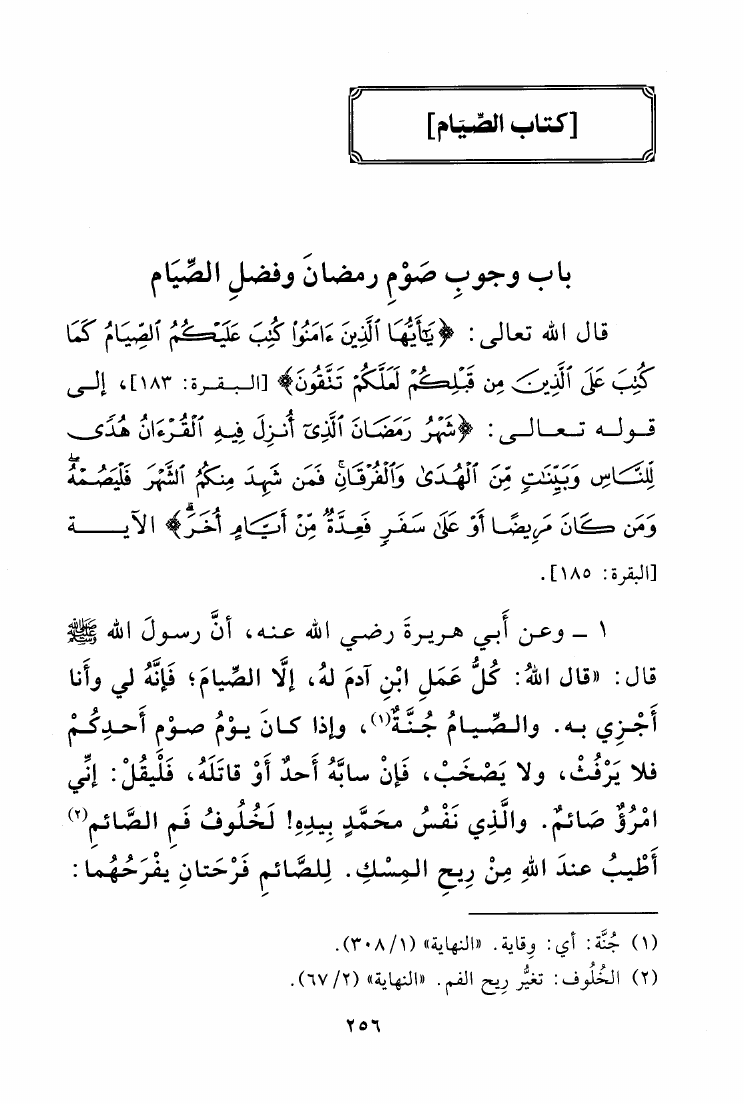 [كتاب الصِّيَام]
باب وجوبِ صَوْمِ رمضانَ وفضلِ الصِّيَام
قال الله تعالى: ﴿يَٰٓأَيُّهَا ٱلَّذِينَ ءَامَنُوا۟ كُتِبَ عَلَيْكُمُ ٱلصِّيَامُ كَمَا
كُتِبَ عَلَى ٱلَّذِينَ مِن قَبْلِكُمْ لَعَلَّكُمْ تَتَّقُونَ﴾ [البقرة: ١٨٣]، إلى
قوله تعالى: ﴿شَهْرُ رَمَضَانَ ٱلَّذِىٓ أُنزِلَ فِيهِ ٱلْقُرْءَانُ هُدًى
لِّلنَّاسِ وَبَيِّنَٰتٍ مِّنَ ٱلْهُدَىٰ وَٱلْفُرْقَانِ ۚ فَمَن شَهِدَ مِنكُمُ ٱلشَّهْرَ فَلْيَصُمْهُ ۖ
وَمَن كَانَ مَرِيضًا أَوْ عَلَىٰ سَفَرٍ فَعِدَّةٌ مِّنْ أَيَّامٍ أُخَرَ ۗ﴾ الآية
[البقرة: ١٨٥].
١ ـ وعن أَبي هريرةَ رضي الله عنه، أنَّ رسولَ الله ﷺ
قال: «قال اللهُ: كُلُّ عَمَلِ ابْنِ آدمَ لهُ، إلَّا الصِّيامَ؛ فَإنَّهُ لي وأَنا
أَجْزِي به. والصِّيامُ جُنَّةٌ(١)، وإذا كانَ يوْمُ صومِ أَحدِكُمْ
فلا يَرْفُثْ، ولا يَصْخَبْ، فَإنْ سابَّهُ أَحدٌ أَوْ قاتَلَهُ، فَلْيقُلْ: إنِّي
امْرُؤٌ صَائمٌ. والَّذِي نَفْسُ محَمَّدٍ بِيدِهِ! لَخُلُوفُ فَمِ الصَّائمِ(٢)
أَطْيبُ عندَ اللهِ مِنْ رِيحِ المِسْكِ. لِلصَّائمِ فَرْحَتانِ يفْرَحُهُما:
(١) جُنَّة: أي: وِقاية. «النهاية» (٣٠٨/١).
(٢) الخُلُوف: تغيُّر رِيح الفم. «النهاية» (٦٧/٢).
٢٥٦